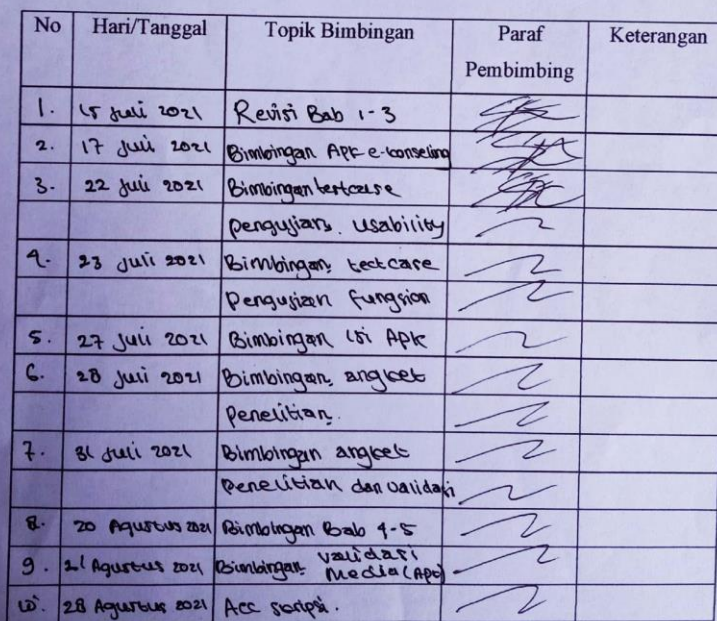 No Hari/Tanggal Topik Bimbingan Paraf Pembimbing Keterangan
1. 15 Juli 2021 Revisi Bab 1-3
2. 17 Juli 2021 Bimbingan Apk e-konseling
3. 22 Juli 2021 Bimbingan testcase
Pengujian usability
4. 23 Juli 2021 Bimbingan testcase
Pengujian fungsion
5. 27 Juli 2021 Bimbingan isi Apk
6. 28 Juli 2021 Bimbingan angket
Penelitian.
7. 31 Juli 2021 Bimbingan angket
Penelitian dan validasi
8. 20 Agustus 2021 Bimbingan Bab 4-5
9. 21 Agustus 2021 Bimbingan validasi
Media (Apk)
10. 28 Agustus 2021 Acc skripsi.